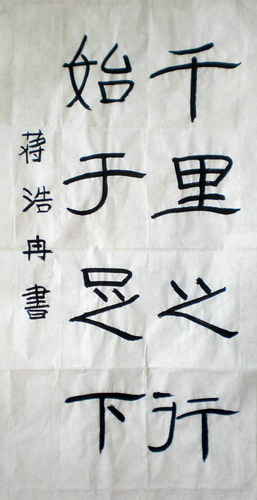 千里之行
始于足下
蒋浩冉書